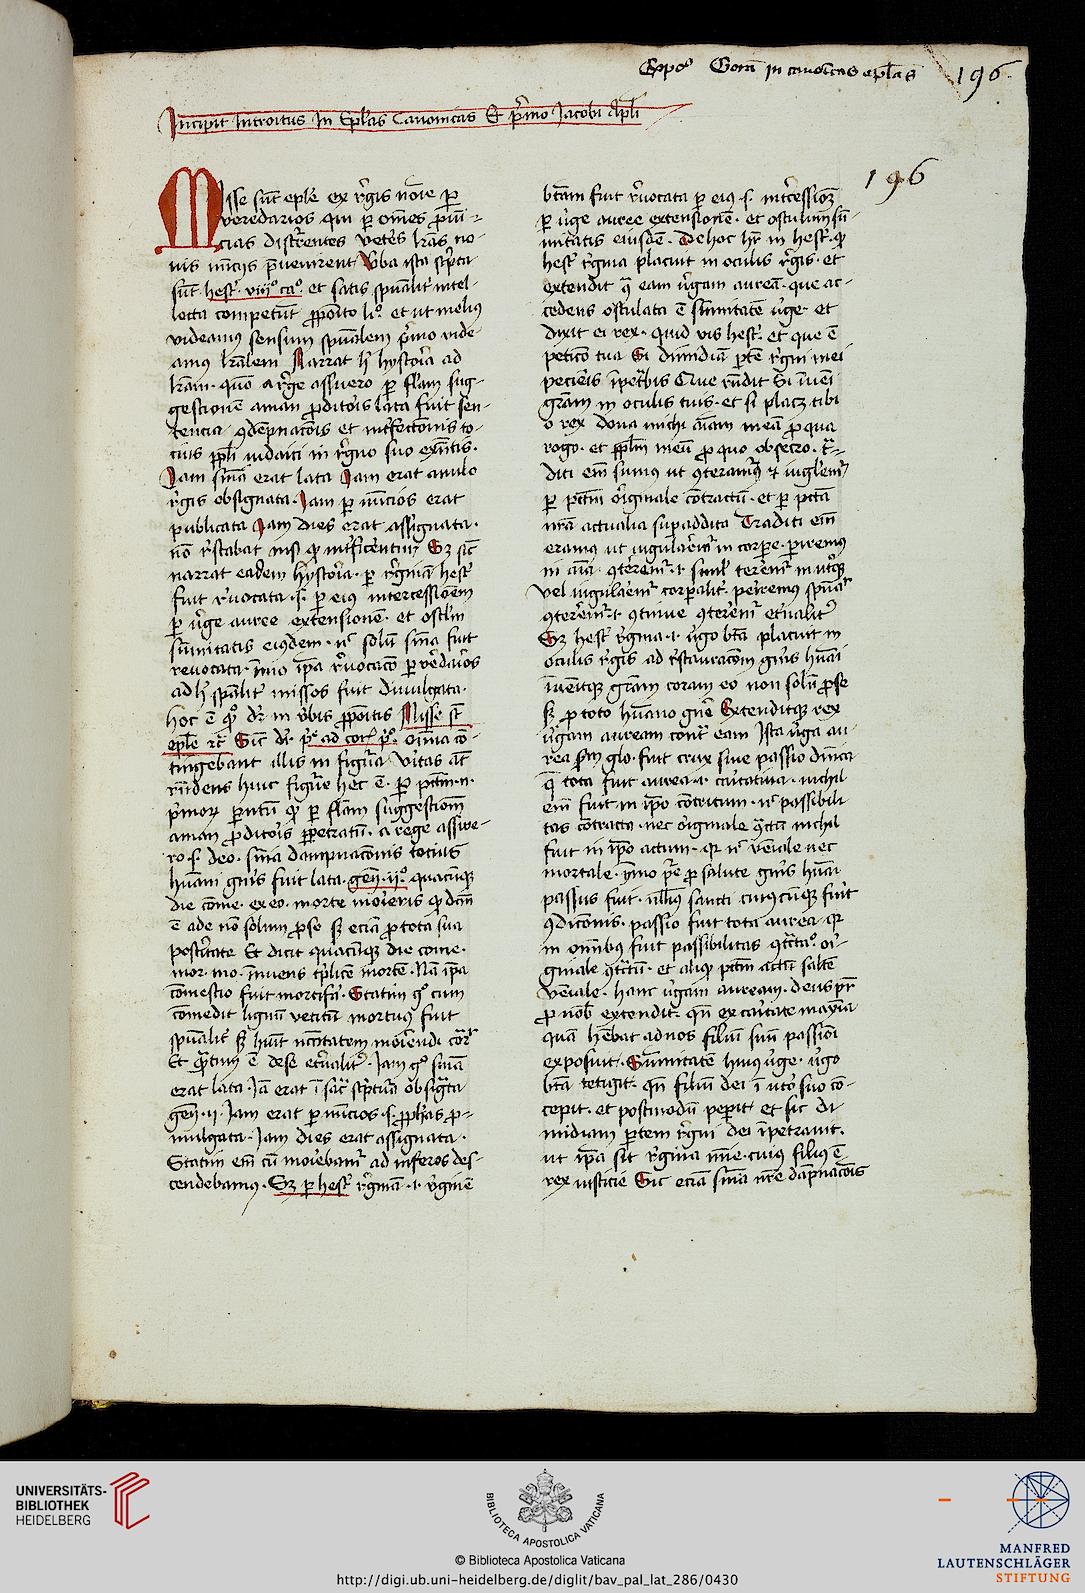 Expo° Goran in canonicas eplas 196
Incipit Introitus In Eplas Canonicas Et p̄mo Jacobi Apli
196
Misse sūt eple ex r̄gis noīe p
veredarios qui p oēs prouī=
cias discrentes veteres lras no-
uis nūcijs p̄uenirent Uba ista sc̄pta
sūt hest̄ viij° ca° et satis spūalit̄ intel-
lecta competūt p̄posito li° et ut melius
videamus sensum spūalem p̄mo vide
amus lralem Narrat h̄ hystoria ad
lram quō a rege assuero p flam sug-
gestionē aman p̄ditoris lata fuit sen-
tencia 9dēpnacōis et intfectionis to-
cius ppli iudaici in r̄gno suo exn̄tis
Jam snīa erat lata Jam erat anulo
r̄gis obsignata Jam p nūcios erat
publicata Jam dies erat assignata
nō r̄stabat nisi q intficerentur Sz sic
narrat eadem hystoria p r̄ginā hest̄
fuit r̄uocata .s. p eius intercessionem
p uirge auree extensionē et osclm
sūmitatis eiusdem nō solū snīa fuit
reuocata īmo ipa r̄uocacō p ueredarios
ad h̄ spālit̄ missos fuit diuulgata
hoc ē qd dr in v̄bis p̄positis Misse st̄
eple etc Sic dr p̄ ad cor p° omīa cō-
tingebant illis in figura
rn̄dens huic figure hec ē p pctm .n.
p̄mor parentū qd p flam suggestionem
aman p̄ditoris ppetratū a rege assue-
ro .s. deo snīa dampnacōnis tocius
humani gn̄is fuit lata gen̄ ij° quacūqz
die come ex eo morte morieris qd dcm̄
ē ade nō solum p se sz eciā p tota sua
post̄itate Et dicit quacūqz die come
mor mo īnuens t̄plicē mortē Nā ipa
comestio fuit mortifa Statim g° cum
comedit lignū vetitū mortuus fuit
spūalit̄ sz huit ncc̄itatem moriendi
Et ē de se et̄nalit̄ Jam g° snīa
erat lata Jā erat ī sac̄ sc̄ptura obsigta
gen̄ ij Jam erat p nūcios .s. pphas p-
mulgata Jam dies erat assignata
Statim em cū moriebant̄ ad inferos des-
cendebamus Sz p hest̄ r̄ginā .i. v̄ginē
btam fuit r̄uocata p eius .s. int̄cessionē
p uirge auree extensionē et osculum sū-
mitatis eiusdē De hoc hr̄ in hest̄ q
hest̄ r̄gina placuit in oculis r̄gis et
extendit 9 eam uirgam aureā que ac-
cedens osculata ē sūmitatē uirge et
dixit ei rex quid vis hest̄ et que ē
peticō tua Si dimidiā ptē r̄gni mei
pecieris īpetbis Que rn̄dit Si īueni
gram in oculis tuis et si placz tibi
o rex dona michi aīam meā p qua
rogo et pplm meū p quo obsecro Tra=
diti em sumus ut 9teramur et iuglem̄
p pctm originale contractū et p pctā
nra actualia supaddita Traditi em
eramus ut iugularem̄ in corpe piremus
in aīa 9terem̄ .i. siml̄ terem̄ in utoqz
vel iugularem̄ corpalit̄ periremus spūal̄
9terem̄ .i. 9tinue 9terem̄ et̄nalit̄
Sz hest̄ r̄gina .i. v̄go bta placuit in
oculis r̄gis ad r̄stauracōm gn̄is humāi
īuenitqz gram coram eo non solū p se
sz p toto humano gn̄e Extenditqz rex
uirgam auream cont̄ eam Ista uirga au-
rea sm̄ glo fuit crux siue passio dnica
q tota fuit aurea .i. caritatiua nichil
em fuit in ipo contritum nō passibili
tas contracta nec originale 9tctū nichil
fuit in ipo actum qr nō veniale nec
mortale ymo p̄re p salute gn̄is humāi
passus fuit nullius sancti cuiuscūqz fuit
9dicōnis passio fuit tota aurea qr
in omībus fuit passibilitas 9tcta ori-
ginale 9tctū et aliqd pctm actū saltē
veniale hanc uirgam auream deus pr
p nob extendit qn ex caritate maxīa
quā hēbat ad nos filiū suū passioni
exposuit Sūmitatē huius uirge v̄go
bta tetigit qn filiū dei ī utero suo cō-
cepit et postmodū pepit et sic di-
midiam ptem r̄gni dei īpetrauit
ut ipa sit r̄gina mīe cuius filius ē
rex iusticie Sic eciā snīa nre dāpnacōis
UNIVERSITÄTS-
BIBLIOTHEK
HEIDELBERG
BIBLIOTECA APOSTOLICA VATICANA
© Biblioteca Apostolica Vaticana
http://digi.ub.uni-heidelberg.de/diglit/bav_pal_lat_286/0430
MANFRED
LAUTENSCHLÄGER
STIFTUNG